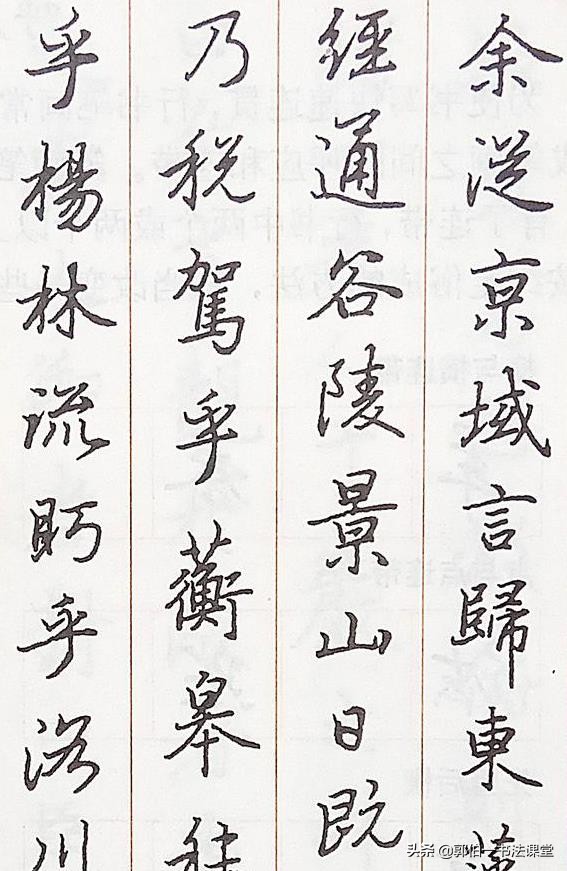 余從京域言歸東藩
經通谷陵景山日既
乃稅駕乎蘅皋秣
乎楊林流眄乎洛川
头条 @郭一书法课堂